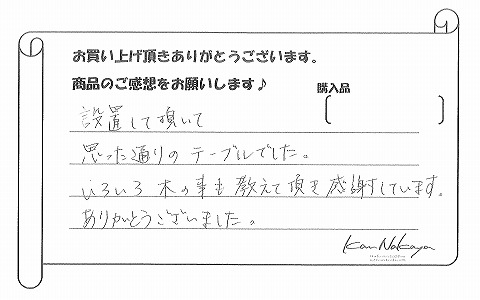 お買い上げ頂きありがとうございます。
商品のご感想をお願いします♪
購入品
設置して頂いて
思った通りのテーブルでした。
いろいろ木の事も教えて頂き感謝しています。
ありがとうございました。
Kan Nakaya